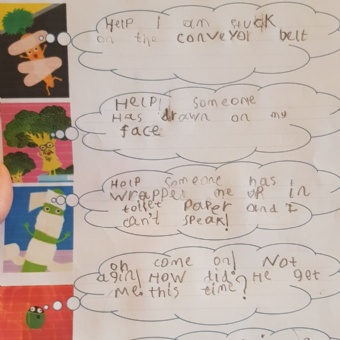 HELP I am stuck
on the conveyor belt
HELP! someone
Has drawn on my
face
HelP someone has
wrapped me up in
toilet Paper and I
can't speak!
oh come on! Not
agin! How did? He get
Me this time?